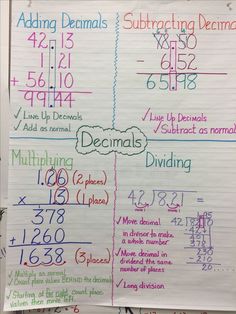 Adding Decimals
42.13
1.21
+ 56.10
99.44
✓ Line Up Decimals
✓ Add as normal
Subtracting Decima
- 6.52
65.98
✓ Line Up Decimals
✓ Subtract as normal
Decimals
Multiplying
1.26 (2 places)
x 1.3 (1 place)
378
+1260
1.638 (3 places)
✓ Multiply as normal
✓ Count place values BEHIND the decimals
✓ Starting at far right, count place
values then move left.
Dividing
✓ Move decimal
in divisor to make
a whole number
✓ Move decimal in
dividend the same
number of places
✓ Long division
378
235
-210